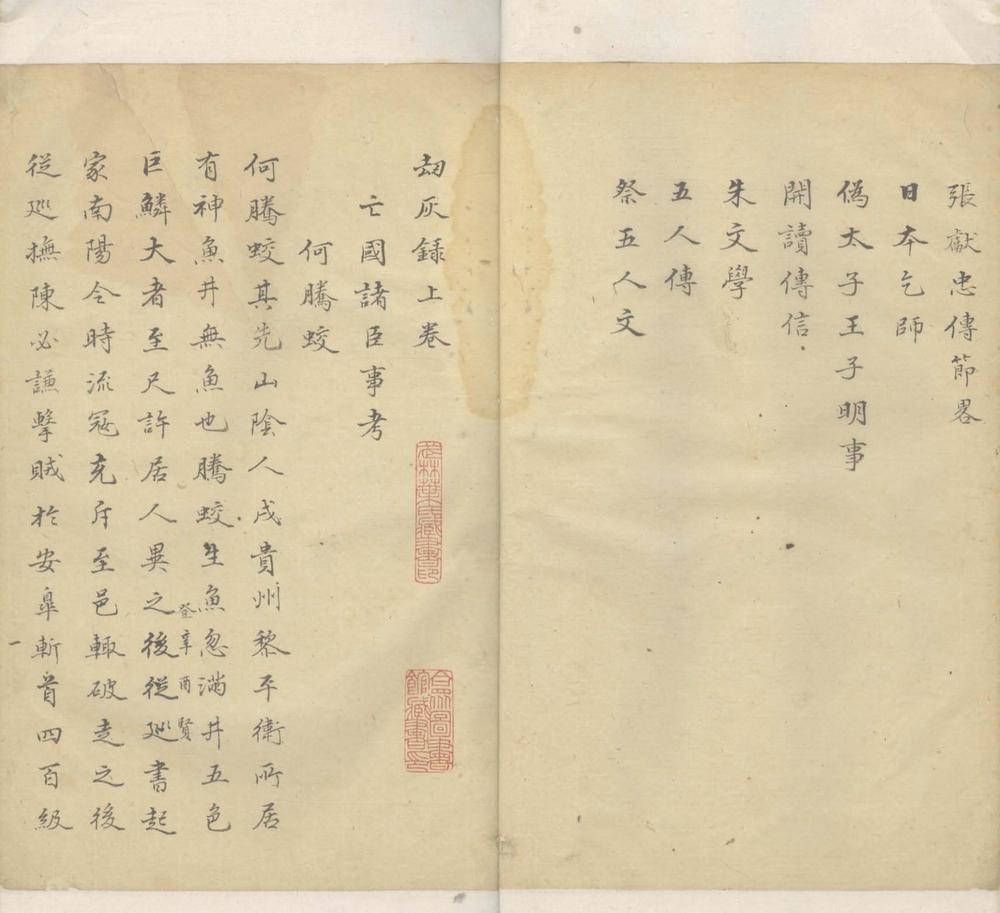 張獻忠傳節畧
日本乞師
偽太子王子明事
開讀傳信
朱文學
五人傳
祭五人文
刼灰録上卷
亡國諸臣事考
何騰蛟
何騰蛟其先山陰人戍貴州黎平衛所居
有神魚井無魚也騰蛟生魚忽滿井五色
登辛酉賢
巨鱗大者至尺許居人異之後從廵書起
家南陽令時流冦充斥至邑輙破走之後
從廵撫陳必謙擊賊於安臯斬首四百級
一
武林葉氏藏書印
合眾圖書館藏書印